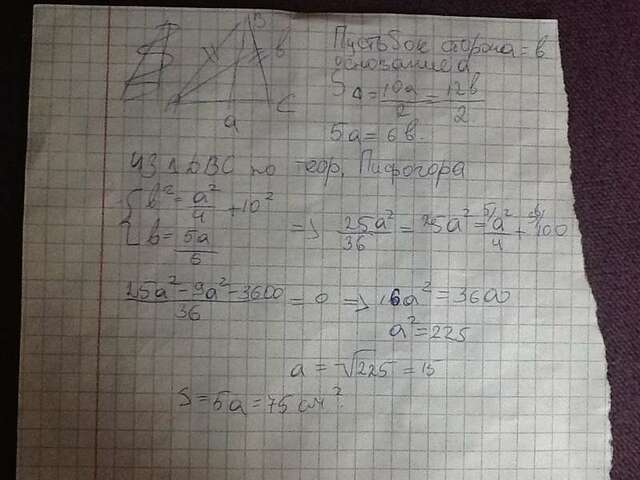 B
b
C
a
Пусть бок сторона = b
основание a
S△ = 10a/2 = 12b/2
5a = 6b
Из △DBC по теор. Пифогора
{ b² = a²/4 + 10²
{ b = 5a/6
=> 25a²/36 = a²/4 + 100
25a² - 9a² - 3600/36 = 0 => 16a² = 3600
a² = 225
a = √225 = 15
S = 5a = 75 см²